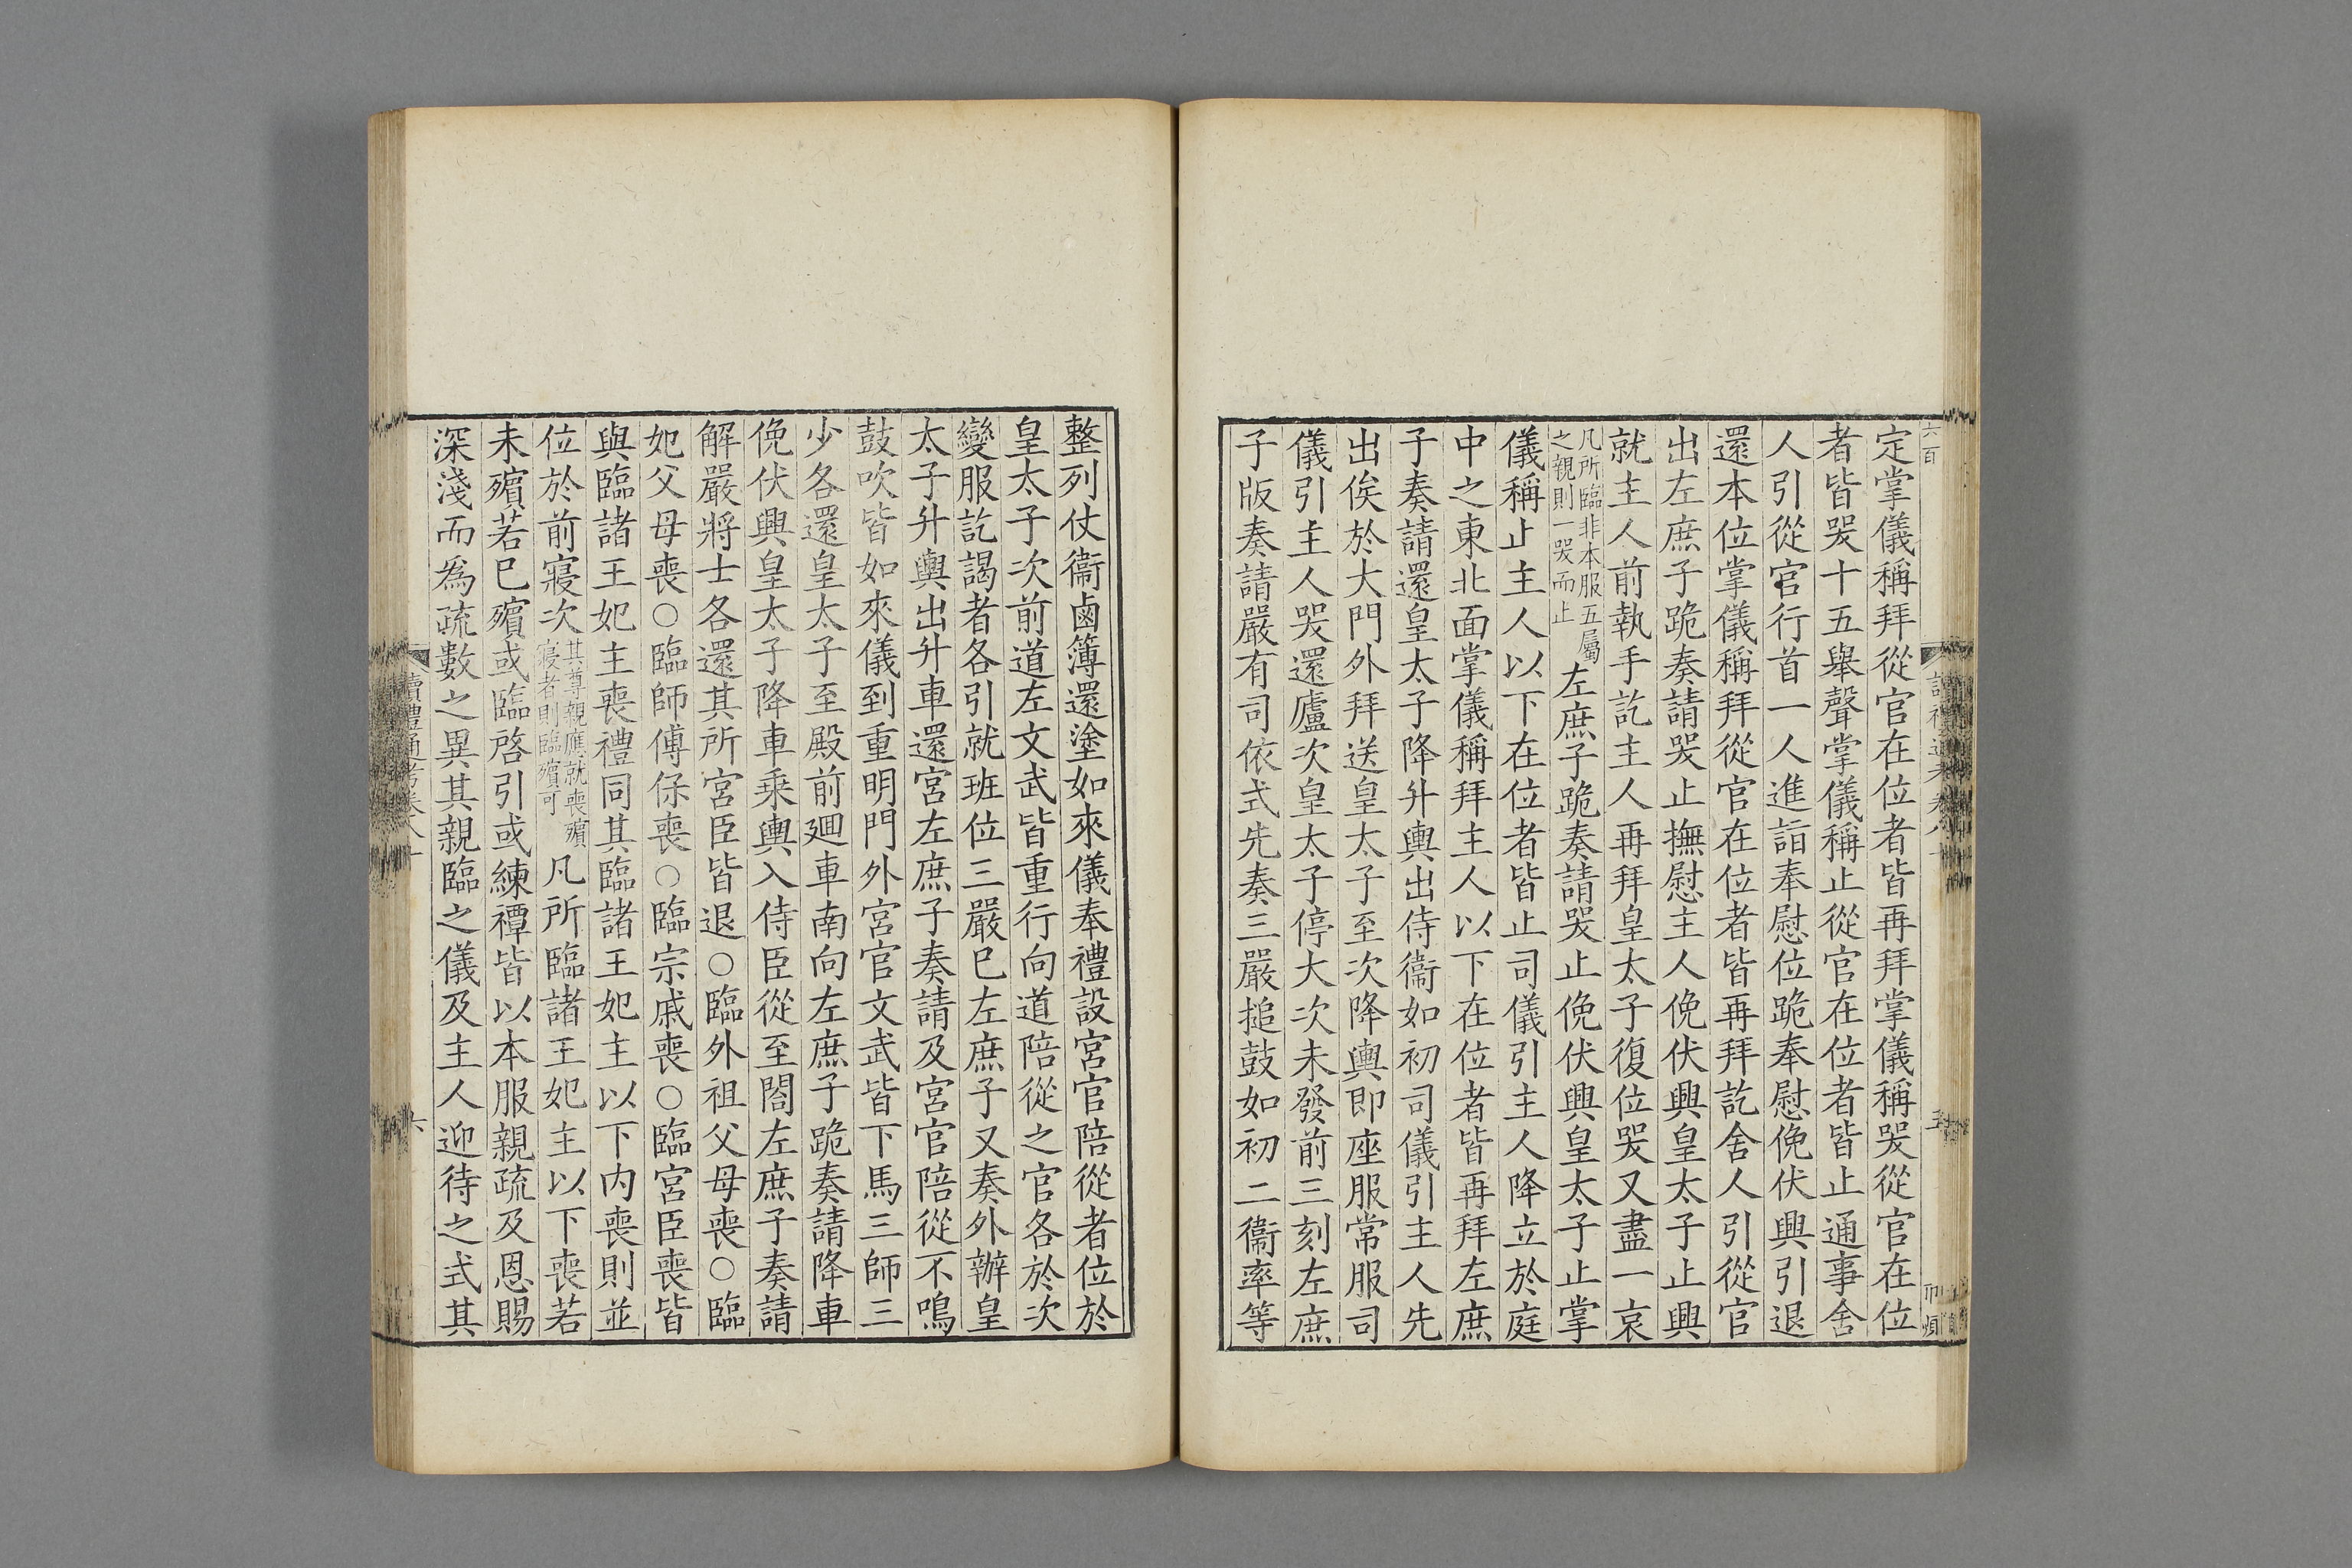 定掌儀稱拜從官在位者皆再拜掌儀稱哭從官在位
者皆哭十五舉聲掌儀稱止從官在位者皆止通事舍
人引從官行首一人進詣奉慰位跪奉慰俛伏興引退
還本位掌儀稱拜從官在位者皆再拜訖舍人引從官
出左庶子跪奏請哭止撫慰主人俛伏興皇太子止興
就主人前執手訖主人再拜皇太子復位哭又盡一哀
凡所臨非本服五屬
之親則一哭而止
左庶子跪奏請哭止俛伏興皇太子止掌
儀稱止主人以下在位者皆止司儀引主人降立於庭
中之東北面掌儀稱拜主人以下在位者皆再拜左庶
子奏請還皇太子降升輿出侍衞如初司儀引主人先
出俟於大門外拜送皇太子至次降輿即座服常服司
儀引主人哭還廬次皇太子停大次未發前三刻左庶
子版奏請嚴有司依式先奏三嚴搥鼓如初二衞率等
整列仗衞鹵簿還塗如來儀奉禮設宮官陪從者位於
皇太子次前道左文武皆重行向道陪從之官各於次
變服訖謁者各引就班位三嚴巳左庶子又奏外辦皇
太子升輿出升車還宮左庶子奏請及宮官陪從不鳴
鼓吹皆如來儀到重明門外宮官文武皆下馬三師三
少各還皇太子至殿前廻車南向左庶子跪奏請降車
俛伏興皇太子降車乘輿入侍臣從至閤左庶子奏請
解嚴將士各還其所宮臣皆退○臨外祖父母喪○臨
妃父母喪○臨師傅保喪○臨宗戚喪○臨宮臣喪皆
與臨諸王妃主喪禮同其臨諸王妃主以下内喪則並
位於前寢次
其尊親應就喪殯
寢者則臨殯可
凡所臨諸王妃主以下喪若
未殯若巳殯或臨啓引或練禫皆以本服親疏及恩賜
深淺而為疏數之異其親臨之儀及主人迎待之式其
讀禮通考卷八十
六